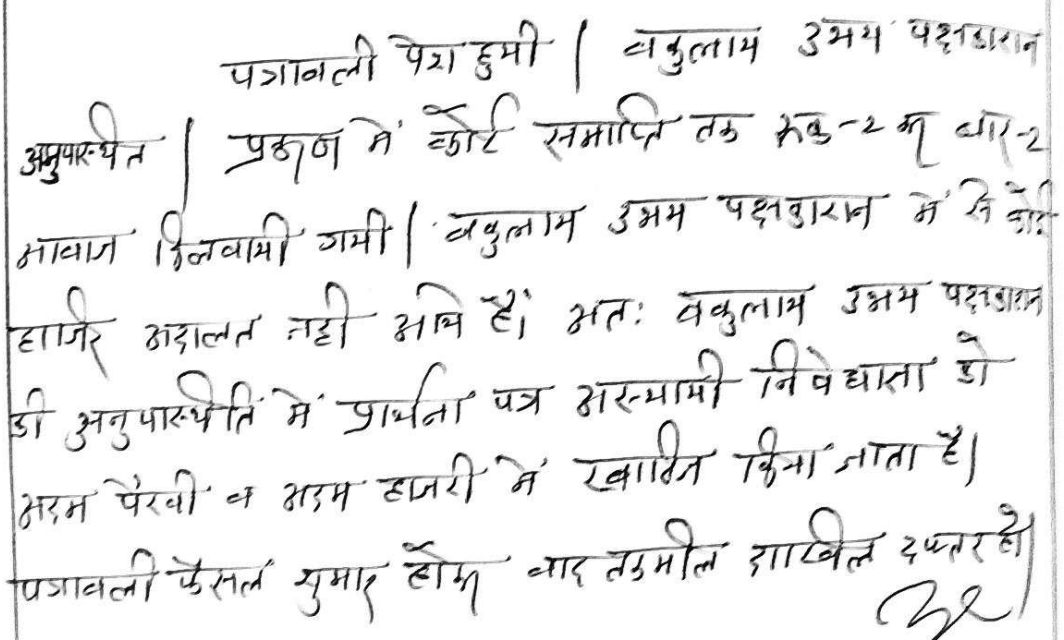 पत्रावली पेश हुयी | वकुलाय उभय पक्षकारान
अनुपस्थित | प्रकरण में कोर्ट समाप्ति तक रूक-2 कर बार-2
आवाज दिलवायी गयी | वकुलाय उभय पक्षकारान में से कोई
हाजिर अदालत नही आये हैं। अतः वकुलाय उभय पक्षकारान
की अनुपस्थिति में प्रार्थना पत्र अस्थायी निषेधाज्ञा को
अदम पैरवी व अदम हाजरी में खारिज किया जाता है|
पत्रावली फैसल शुमार होकर बाद तकमील दाखिल दफ्तर हो|